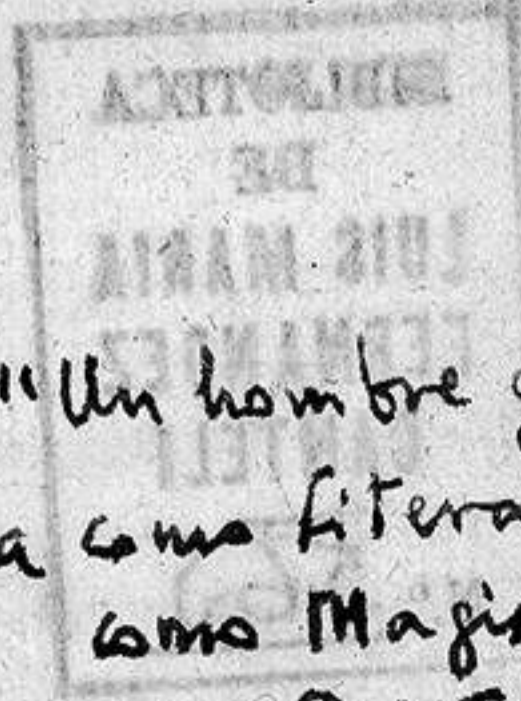 BIBLIOTECA
DE
LUIS MARIA
FERNANDEZ
"Un hombre
a como Litera
como Magis